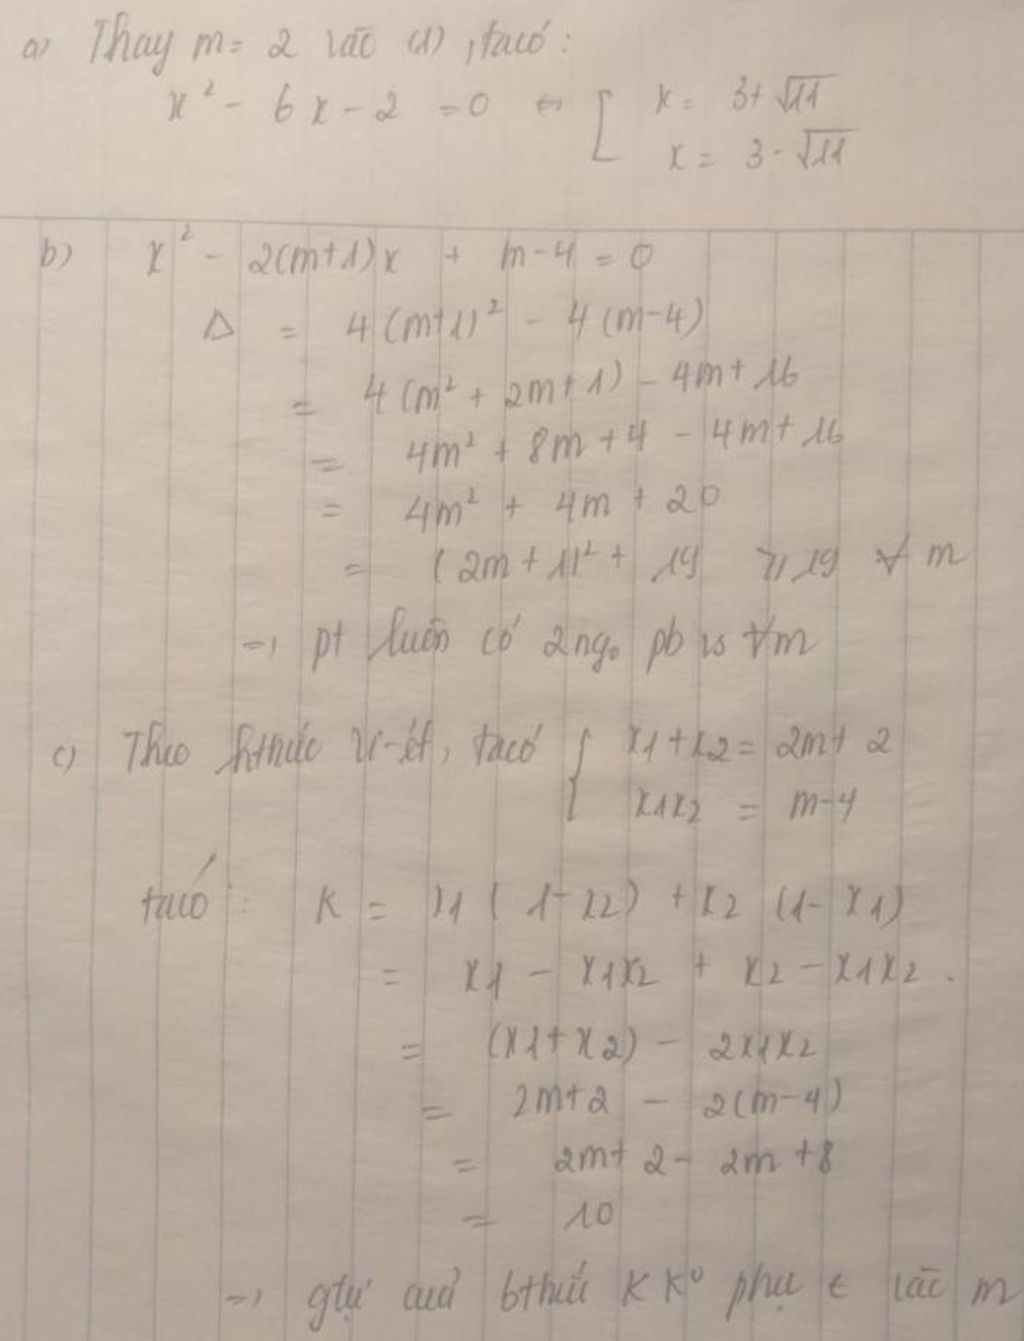 a) Thay m = 2 vào (1), ta có:
x² - 6x - 2 = 0 ⇔ [ x = 3 + √11
x = 3 - √11
b) x² - 2(m+1)x + m-4 = 0
Δ = 4(m+1)² - 4(m-4)
= 4(m² + 2m + 1) - 4m + 16
= 4m² + 8m + 4 - 4m + 16
= 4m² + 4m + 20
= (2m + 1)² + 19 ⩾ 19 ∀ m
→ pt luôn có 2 ngo pb vs ∀m
c) Theo hthức Vi-ét, ta có { x1 + x2 = 2m + 2
x1x2 = m-4
ta có: K = x1 (1 - x2) + x2 (1 - x1)
= x1 - x1x2 + x2 - x1x2.
= (x1 + x2) - 2x1x2
= 2m+2 - 2(m-4)
= 2m + 2 - 2m + 8
= 10
→ gtrị của bthức K ko phụ t vào m